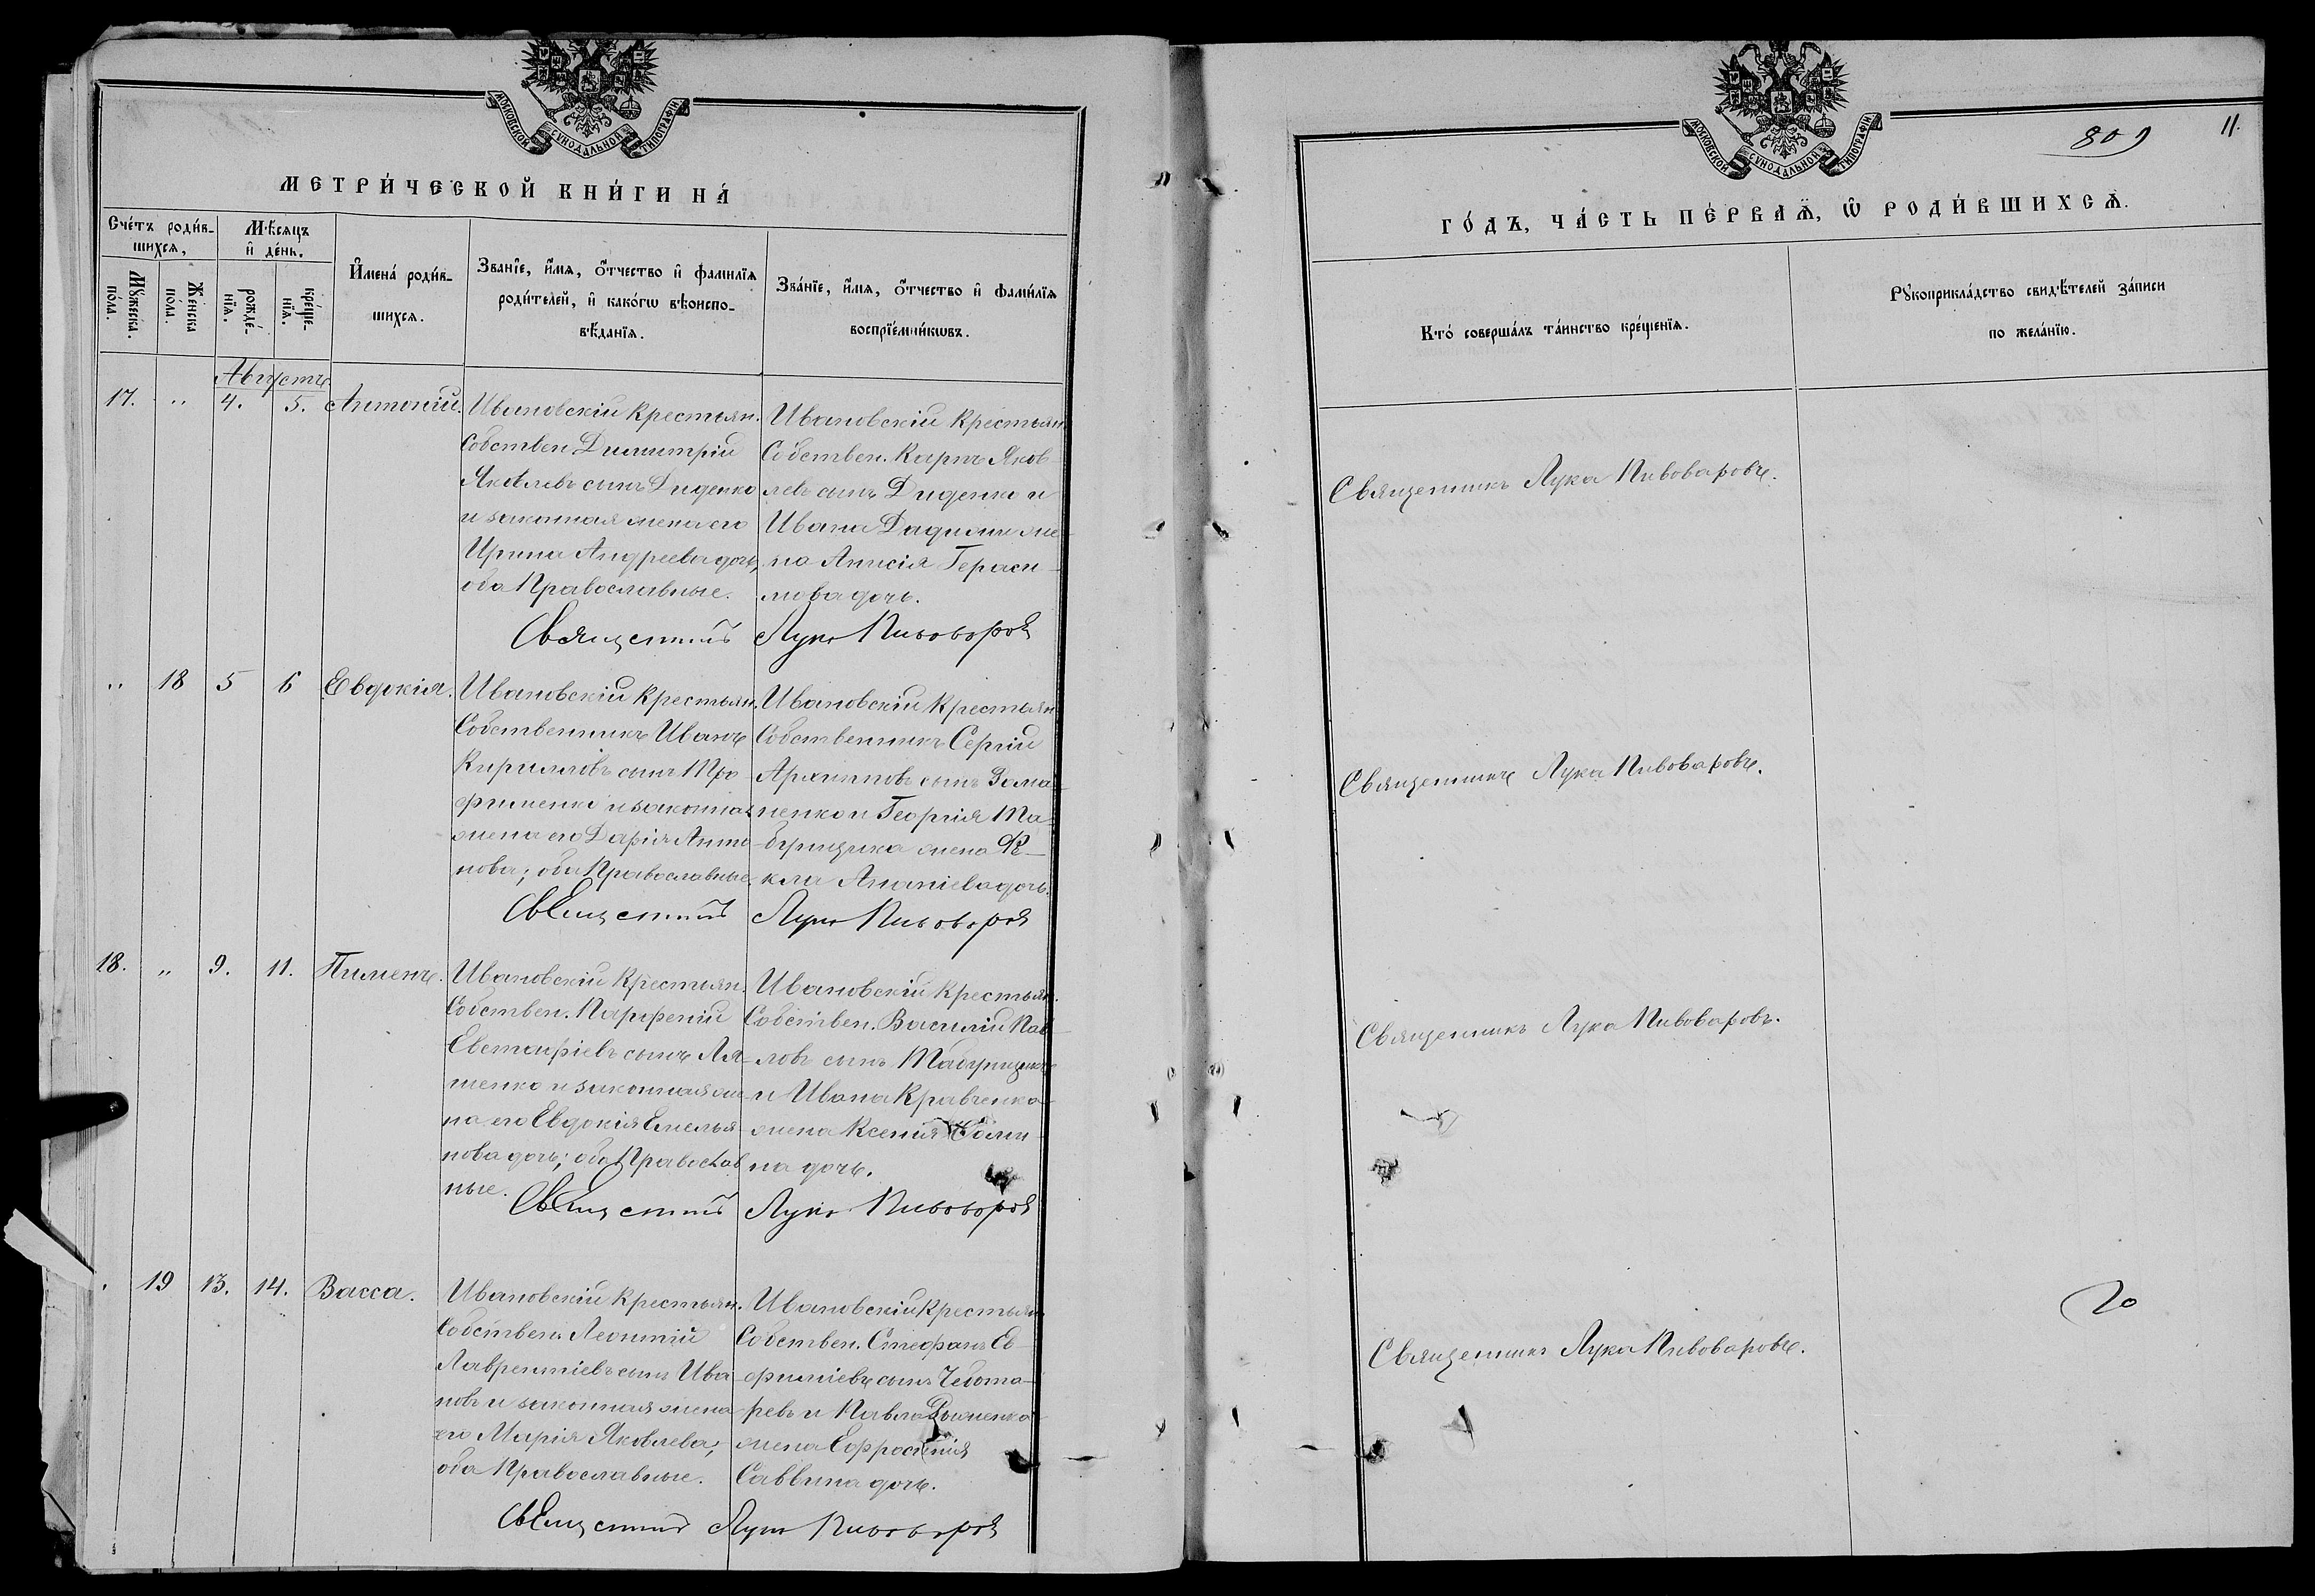 МОСКОВСКОЙ СУНОДАЛЬНОЙ ТИПОГРАФІИ
МЕТРИ́ЧЕСКОЙ КНИ́ГИ НА́
Сче́тъ роди́в-
шихсѧ,
Мѣ́сяцъ
и҆ де́нь.
И҆мена́ роди́в-
шихсѧ.
Зва́нїе, и҆́мѧ, ѻ҆́тчество и҆ фами́лїѧ
роди́телей, и҆ како́гѡ вѣроиспо-
вѣ́данїѧ.
Зва́нїе, и҆́мѧ, ѻ҆́тчество и҆ фами́лїѧ
воспрїе́мникѡвъ.
Мꙋ́жеска
по́ла.
Же́нска
по́ла.
рожде́-
нїѧ.
креще́-
нїѧ.
Августъ
17. „ 4. 5. Антоній.
Ивановскій крестьян.
Собствен. Димитрій
Яковлевъ сынъ Диденко
и законная жена его
Ирина Андреева дочь,
оба Православные.
Ивановскій крестьян.
Собствен. Карпъ Яков-
левъ сынъ Диденко и
Ивана Дадики же-
на Анисія Гераси-
мова дочь.
Священникъ Лука Пивоваровъ
„ 18 5 6 Евдокія.
Ивановскій крестьян.
Собственникъ Иванъ
Кирилловъ сынъ Тро-
фименко и законная
жена его Дарія Анто-
нова; оба Православные.
Ивановскій крестьян.
Собственникъ Сергій
Архиповъ сынъ Дома-
ненко и Георгія Та-
бунщика жена Ѳе-
кла Ананіева дочь.
Священникъ Лука Пивоваровъ
18. „ 9. 11. Пименъ.
Ивановскій крестьян.
Собствен. Парфеній
Евстафіевъ сынъ Ля-
шенко и законная же-
на его Евдокія Емелья-
нова дочь; оба Православ-
ные.
Ивановскій крестьян.
Собствен. Василій Пав-
ловъ сынъ Табунщикъ
и Ивана Кравченка
жена Ксенія Ѳоми-
на дочь.
Священникъ Лука Пивоваровъ
„ 19 13. 14. Васса.
Ивановскій крестьян.
Собствен. Леонтій
Лаврентіевъ сынъ Ива-
новъ и законная жена
его Марія Яковлева;
оба Православные.
Ивановскій крестьян.
Собствен. Стефанъ Ев-
фиміевъ сынъ Чебота-
ревъ и Павла
жена Евфросинія
Саввина дочь.
Священникъ Лука Пивоваровъ
МОСКОВСКОЙ СУНОДАЛЬНОЙ ТИПОГРАФІИ
809
11.
ГО́ДЪ, ЧА́СТЬ ПЕ́РВАѦ, Ѽ РОДИ́ВШИХСѦ.
Кто́ соверша́лъ та́инство креще́нїѧ.
Рꙋкоприкла́дство свидѣ́телей за́писи
по жела́нїю.
Священникъ Лука Пивоваровъ.
Священникъ Лука Пивоваровъ.
Священникъ Лука Пивоваровъ.
Священникъ Лука Пивоваровъ.
20